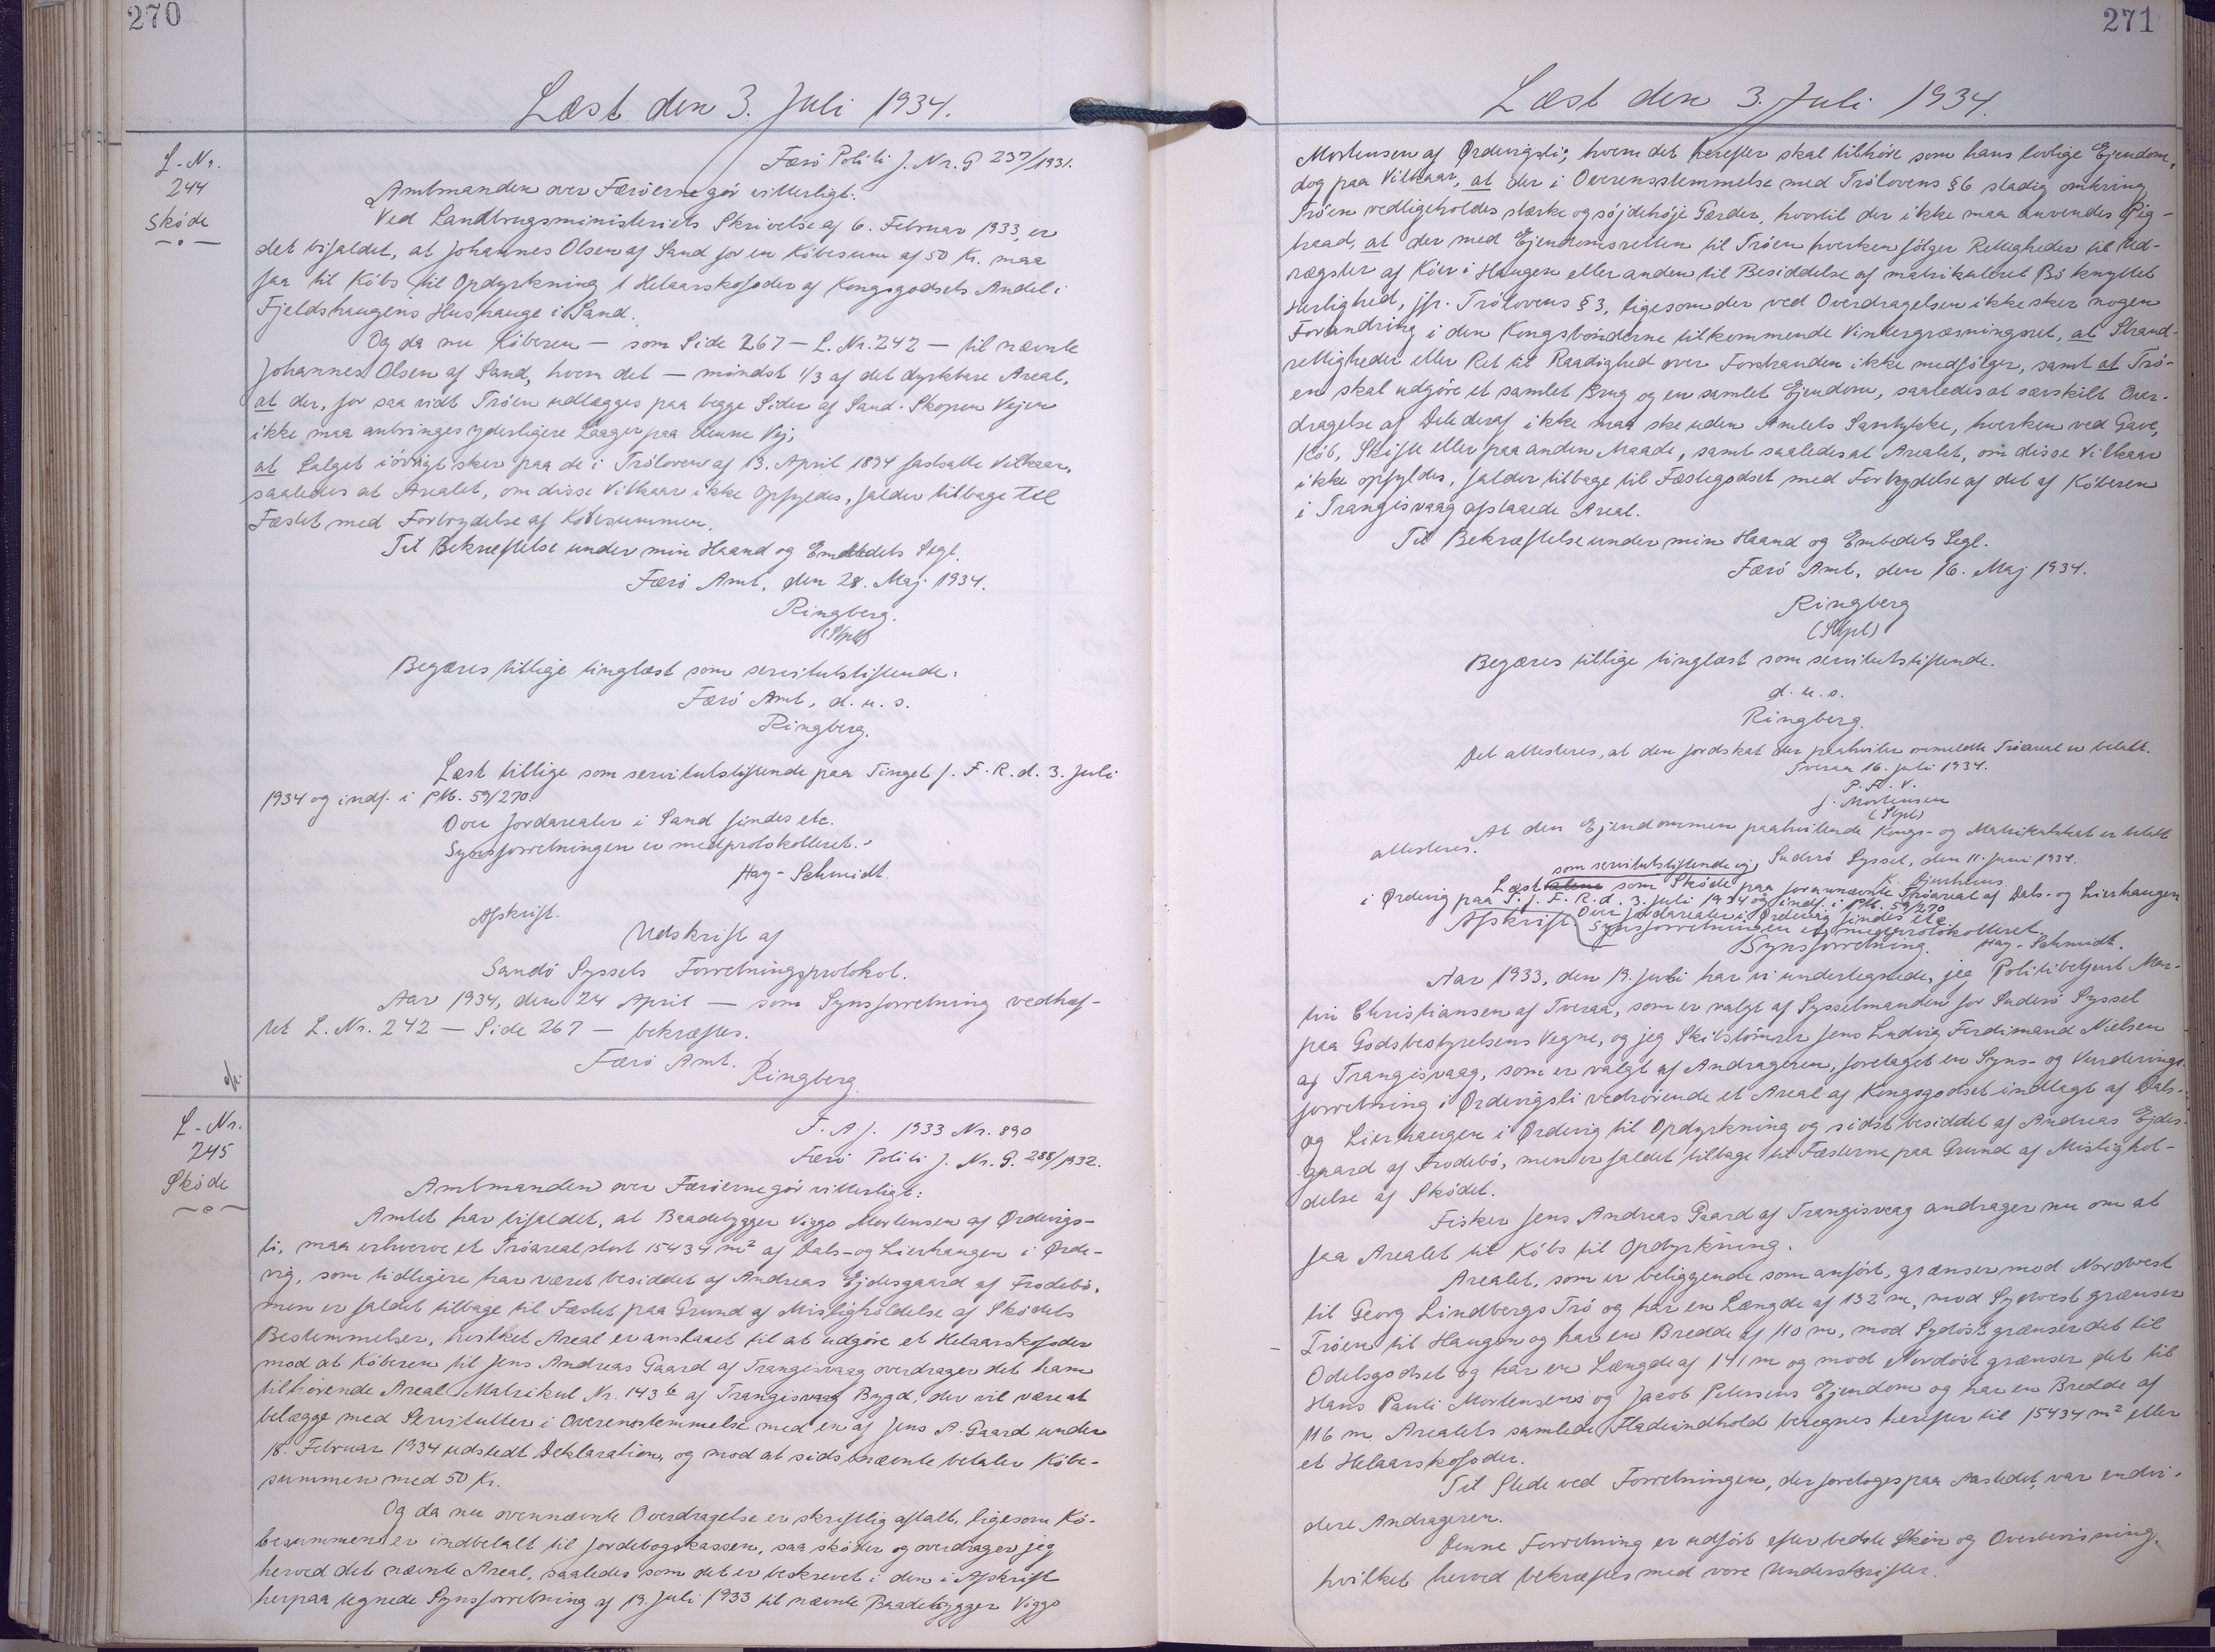 270
Læst den 3. Juli 1934.
L-Nr.
244
Skøde
Færö Politi J. Nr. G 237/1931.
Amtmanden over Færöerne gör vitterligt:
Ved Landbrugsministeriets Skrivelse af 6. Februar 1933, er
det bifaldet, at Johannes Olsen af Sand for en Köbesum af 50 Kr. maa
faa til Köbs til Opdyrkning 1 Helaarskofoder af Kongsgodsets Andel i
Fjeldshaugens Hushauge i Sand.
Og da nu Köberen — som Side 267 — L. Nr. 242 — til nævnte
Johannes Olsen af Sand, hvem det — mindst 1/3 af det dyrkbare Areal,
at der, for saa vidt Tröen udlægges paa begge Sider af Sand-Skopun Vejen
ikke maa anbringes yderligere Laager paa denne Vej,
at Salget iövrigt sker paa de i Tröloven af 13. April 1894 fastsatte Vilkaar,
saaledes at Arealet, om disse Vilkaar ikke opfyldes, falder tilbage til
Fæstet med Forbrydelse af Köbesummen.
Til Bekræftelse under min Haand og Embedets Segl.
Færö Amt, den 28. Maj 1934.
Ringberg.
(Stpl)
Begæres tillige tinglæst som servitutstiftende:
Færö Amt, d. u. s.
Ringberg.
Læst tillige som servitutstiftende paa Tinget f. F. R. d. 3. Juli
1934 og indf. i PM. 59/270.
Over Jordarealer i Sand findes etc.
Synsforretningen er medprotokolleret.
Hay-Schmidt.
Afskrift.
Udskrift af
Sandö Syssels Forretningsprotokol.
Aar 1934, den 24 April — som Synsforretning vedhæf-
tet L. Nr. 242 — Side 267 — bekræftes.
Færö Amt.
Ringberg.
L-Nr.
245
Skøde
F. A. J. 1933 Nr. 890
Færö Politi J. Nr. G. 288/1932.
Amtmanden over Færöerne gör vitterligt:
Amtet har bifaldet, at Baadebygger Viggo Mortensen af Ørdevigs-
li, maa erhverve et Tröareal stort 15434 m² af Dals- og Lierhaugen i Ørde-
vig, som tidligere har været besiddet af Andreas Ejdesgaard af Frodebö,
men er faldet tilbage til Fæstet paa Grund af Misligholdelse af Skødets
Bestemmelser, hvilket Areal er anslaaet til at udgöre et Helaarskofoder
mod at Köberen til Jens Andreas Gaard af Trangisvaag overdrager det ham
tilhörende Areal Matrikul Nr. 143 b af Trangisvaag Bygd, der vil være at
belægge med Servitutter i Overensstemmelse med en af Jens A. Gaard under
18. Februar 1934 udstedt Deklaration, og mod at sidstnævnte betaler Köbe-
summen med 50 Kr.
Og da nu ovennævnte Overdragelse er skriftlig aftalt, ligesom Kö-
besummen er indbetalt til Jordebogskassen, saa skøder og overdrager jeg
herved det nævnte Areal, saaledes som det er beskrevet i den i Afskrift
herpaa tegnede Synsforretning af 19. Juli 1933 til nævnte Baadebygger Viggo
271
Læst den 3. Juli 1934.
Mortensen af Ørdevigsli, hvem det herefter skal tilhöre som hans lovlige Ejendom,
dog paa Vilkaar, at der i Overensstemmelse med Trölovens § 6 stadig omkring
Tröen vedligeholdes stærke og söjdehöje Gærder, hvortil der ikke maa anvendes Pig-
traad, at der med Ejendomsretten til Tröen hverken fölger Rettigheder til Ud-
rægster af Köer i Haugen eller anden til Besiddelse af matrikuleret Bö knyttet
Herlighed, jfr. Trölovens § 3, ligesom der ved Overdragelsen ikke sker nogen
Forandring i den Kongsbönderne tilkommende Vintergræsningsret, at Strand-
rettigheder eller Ret til Raadighed over Forstranden ikke medfölger, samt at Trö-
en skal udgöre et samlet Brug og en samlet Ejendom, saaledes at særskilt Over-
dragelse af Dele deraf ikke maa ske uden Amtets Samtykke, hverken ved Gave,
Köb, Skifte eller paa anden Maade, samt saaledes at Arealet, om disse Vilkaar
ikke opfyldes, falder tilbage til Fæstegodset med Forbrydelse af det af Köberen
i Trangisvaag afstaaede Areal.
Til Bekræftelse under min Haand og Embedets Segl.
Færö Amt, den 16. Maj 1934.
Ringberg
(Stpl)
Begæres tillige tinglæst som servitutstiftende.
d. u. s.
Ringberg.
Det attesteres, at den Jordskat der paahviler ommeldte Tröareal er betalt.
Tveraa 16. juli 1934.
P. F. V.
J. Mortensen
(Stpl)
At den Ejendommen paahvilende Kongs- og Matrikulskat er betalt
attesteres.
Suderö Syssel, den 11. juni 1934.
som servitutstiftende og
Læst alene som Skøde paa forannævnte Tröareal af Dals- og Lierhaugen
i Ørdevig paa T. f. F. R. d. 3. Juli 1934 og indf. i PM. 59/270
Over Jordarealer i Ørdevig findes etc.
Afskrift.
Synsforretningen er medprotokolleret.
Hay-Schmidt.
Synsforretning.
Aar 1933, den 19. Juli har vi undertegnede, jeg Politibetjent Mar-
tin Christiansen af Tveraa, som er valgt af Sysselmanden for Suderö Syssel
paa Godsbestyrelsens Vegne, og jeg Skibstömrer Jens Ludvig Ferdinand Nielsen
af Trangisvaag, som er valgt af Andrageren, foretaget en Syns- og Vurderings-
forretning i Ørdevigsli vedrörende et Areal af Kongsgodset indlagt af Dals-
og Lierhaugen i Ørdevig til Opdyrkning og sidst besiddet af Andreas Ejdes-
gaard af Frodebö, men er faldet tilbage til Fæsterne paa Grund af Mislighol-
delse af Skødet.
Fisker Jens Andreas Gaard af Trangisvaag andrager nu om at
faa Arealet til Köbs til Opdyrkning.
Arealet, som er beliggende som anfört, grænser mod Nordvest
til Georg Lindbergs Trö og har en Længde af 132 m, mod Sydvest grænser
Tröen til Haugen og har en Bredde af 110 m, mod Sydöst grænser det til
Odelsgodset og har en Længde af 141 m og mod Nordöst grænser det til
Hans Pauli Mortensens og Jacob Petersens Ejendom og har en Bredde af
116 m. Arealets samlede Fladeindhold beregnes herefter til 15434 m² eller
et Helaarskofoder.
Til Stede ved Forretningen, der foretoges paa Aastedet, var endvi-
dere Andrageren.
Denne Forretning er udfört efter bedste Skön og Overbevisning,
hvilket herved bekræftes med vore Underskrifter.